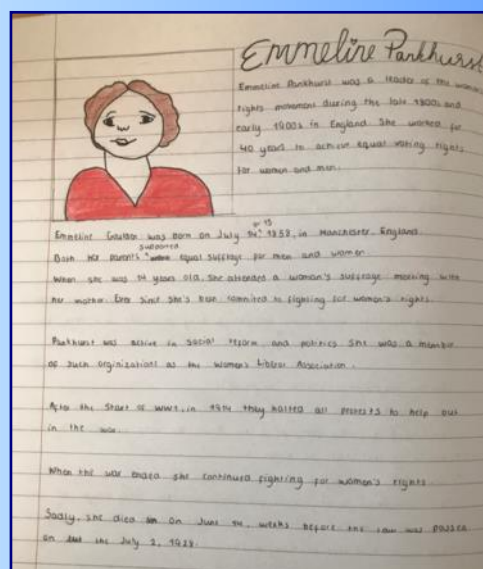 Emmeline Pankhurst
Emmeline Pankhurst was a leader of the women
rights movement during the late 1800s and
early 1900s in England. She worked for
40 years to achieve equal voting rights
for women and men.
or 15
Emmeline Goulden was born on July 14th 1858, in Manchester, England.
supported
Both her parents equal suffrage for men and women.
When she was 14 years old, she attended a woman's suffrage meeting with
her mother. Ever since she's been commited to fighting for women's rights.
Pankhurst was active in social reform and politics. She was a member
of such orginizations as the Women's Liberal Association.
After the start of WW1, in 1914 they halted all protests to help out
in the war.
When the war ended she continued fighting for women's rights
Sadly, she died on June 14, weeks before the law was passed
on the July 2, 1928.